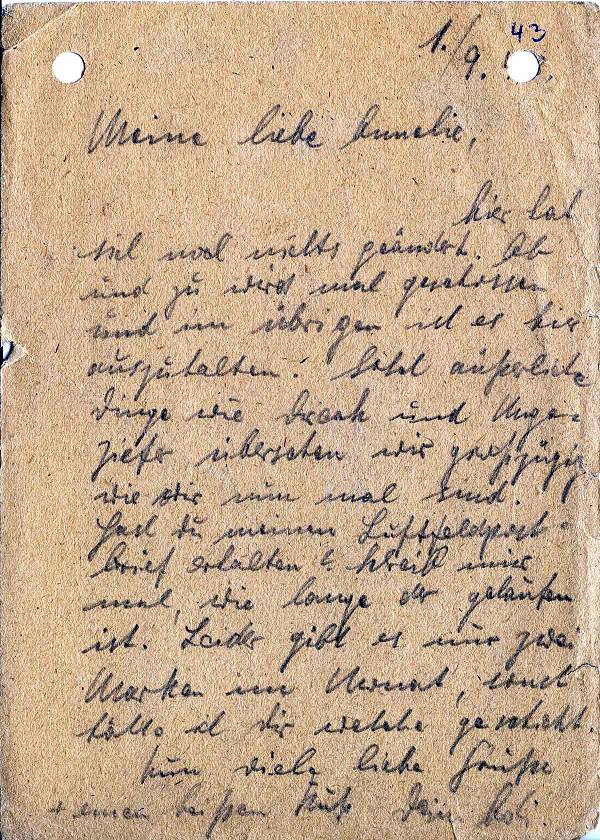 1./9. 43
Meine liebe Annelie,
hier hat
sich noch nichts geändert. Ab
und zu wird mal geschossen
und im übrigen ist es hier
auszuhalten. Solch äußerliche
Dinge wie Dreck und Unge-
ziefer übersehen wir großzügig
wie wir nun mal sind.
Hast du meinen Luftfeldpost-
brief erhalten? Schreib mir
mal, wie lange der gelaufen
ist. Leider gibt es nur zwei
Marken im Monat, sonst
hätte ich dir welche geschickt.
Nun viele liebe Grüße
+ einen heißen Kuß Dein